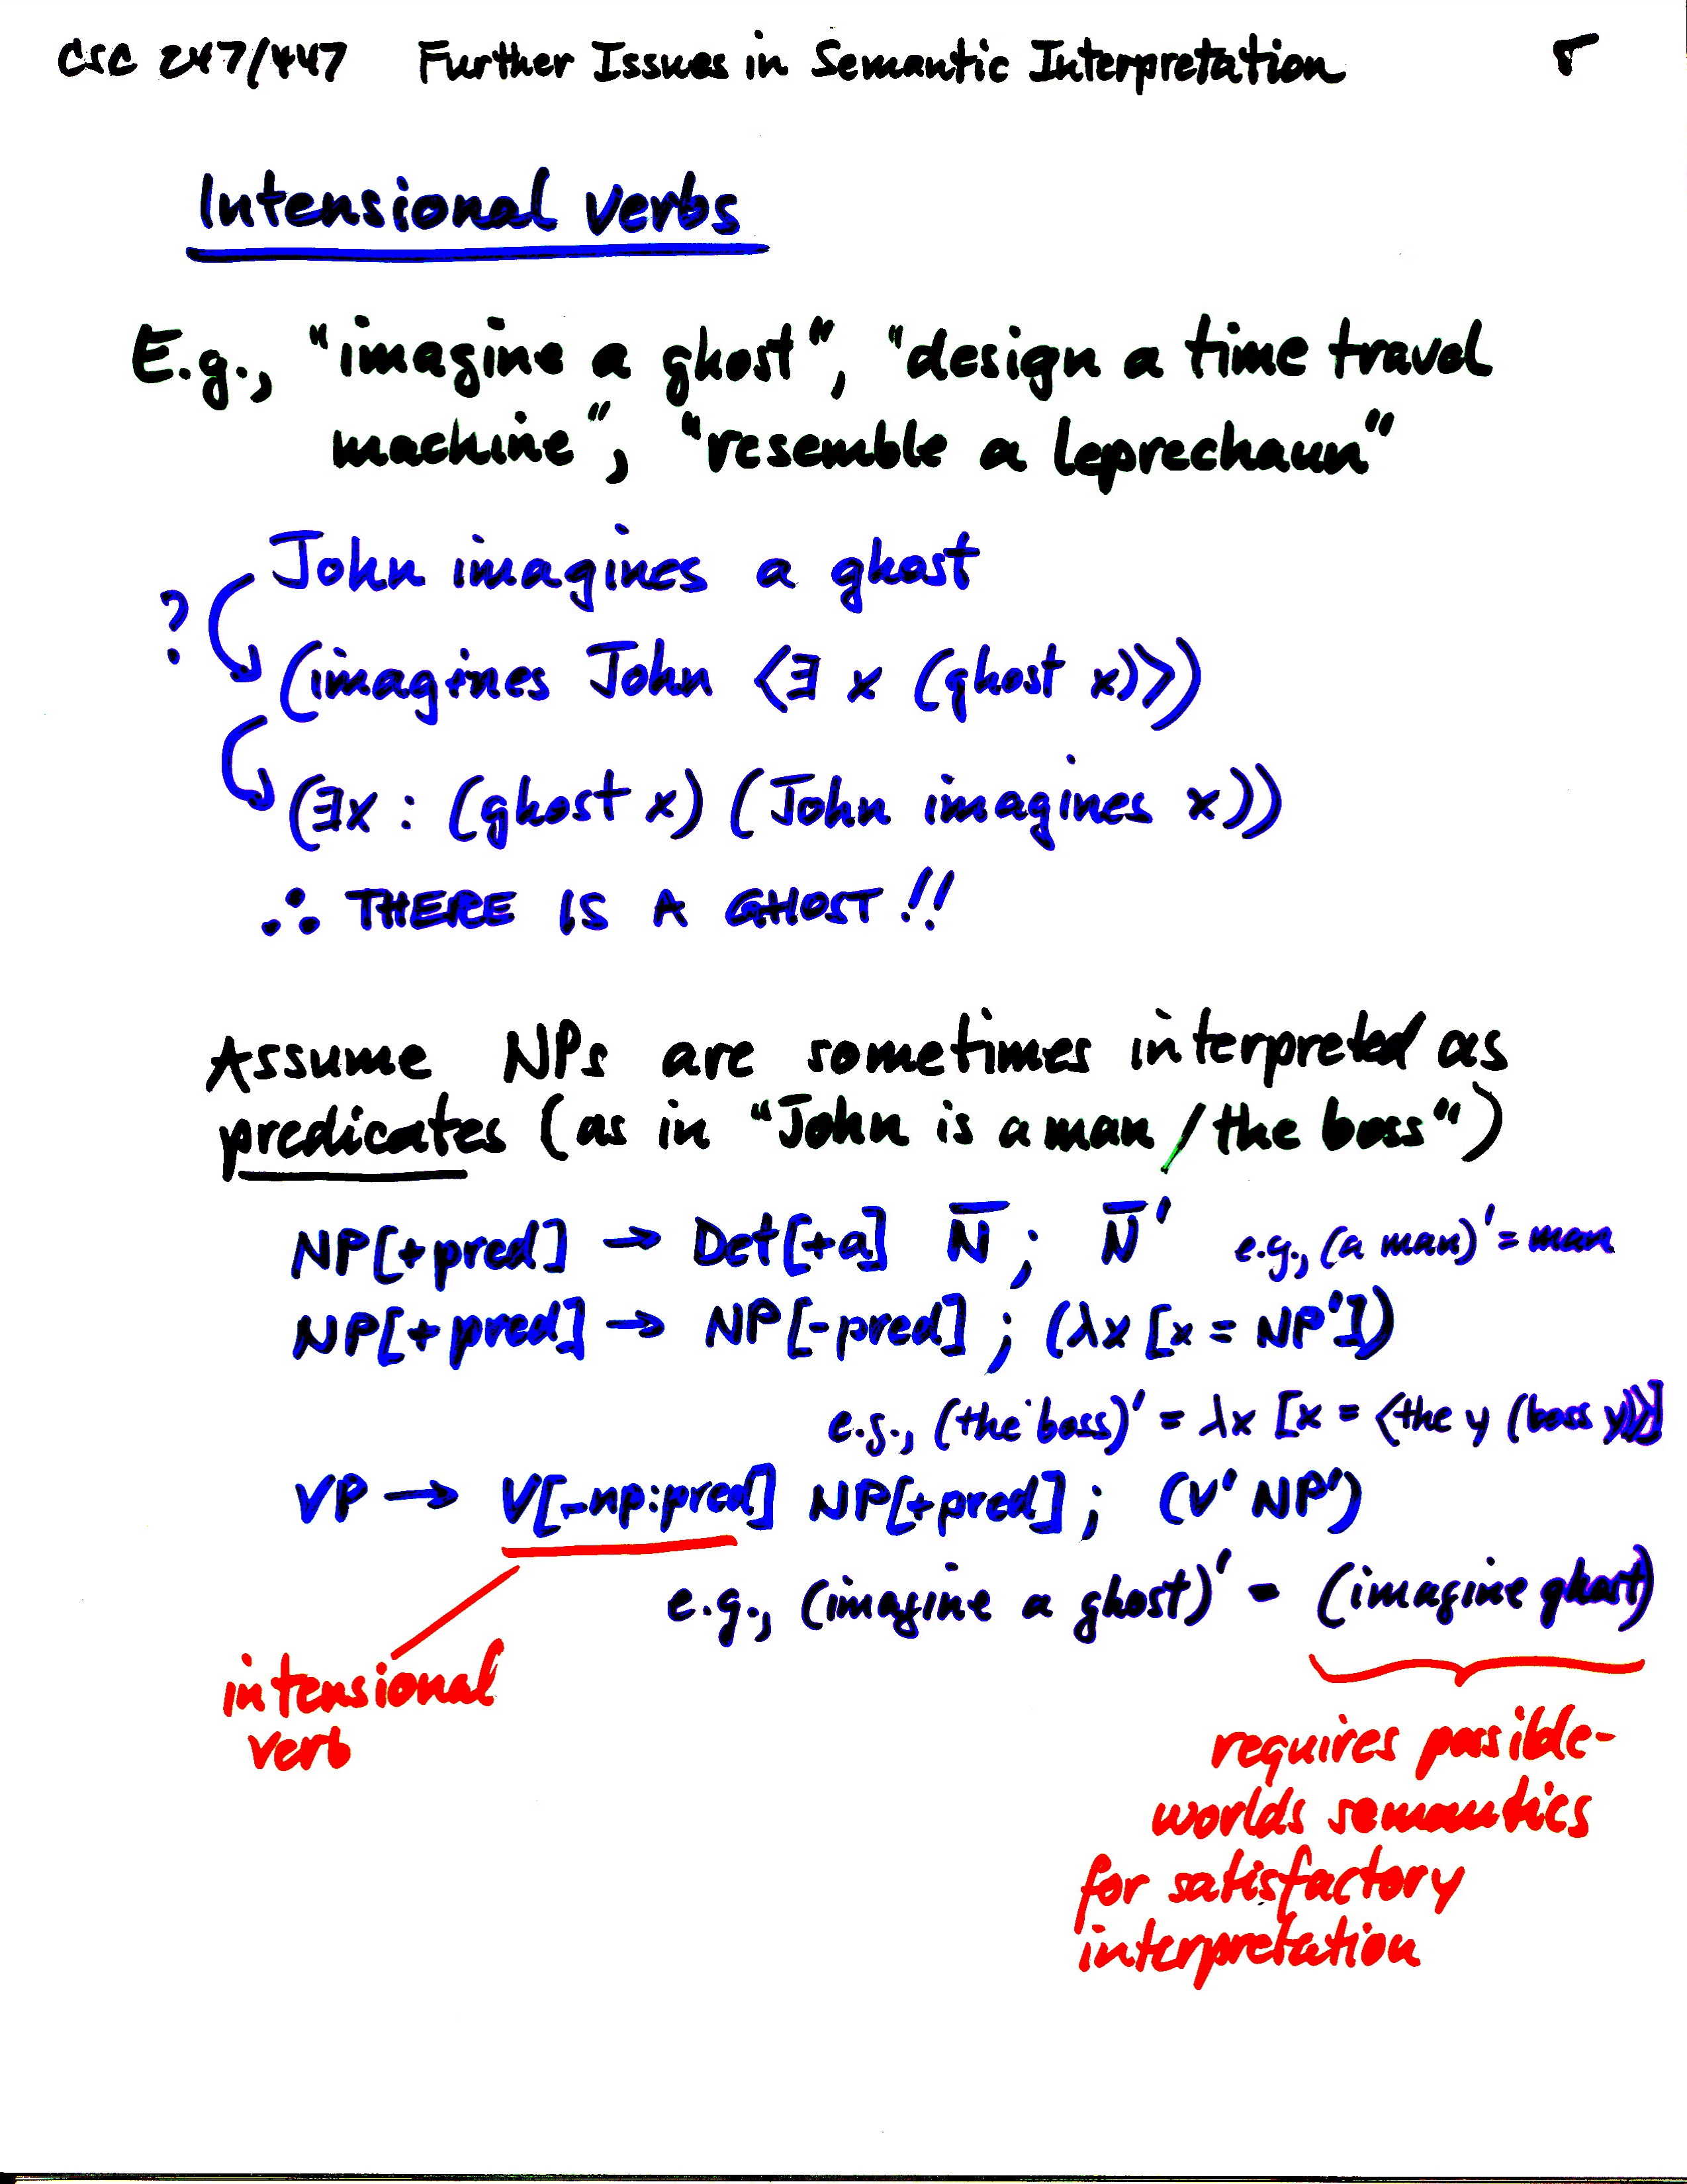 CSC 247/447 Further Issues in Semantic Interpretation 5
Intensional verbs
E.g., "imagine a ghost", "design a time travel
machine", "resemble a leprechaun"
John imagines a ghost
?
(imagines John <∃ x (ghost x)>)
(∃x : (ghost x) (John imagines x))
∴ THERE IS A GHOST!!
Assume NPs are sometimes interpreted as
predicates (as in "John is a man / the boss")
NP[+pred] → Det[+a] N̄ ; N̄' e.g., (a man)' = man
NP[+pred] → NP[-pred] ; (λx [x = NP'])
e.g., (the boss)' = λx [x = <the y (boss y)>]
VP → V[_np:pred] NP[+pred] ; (V' NP')
e.g., (imagine a ghost)' = (imagine ghost)
intensional
verb
requires possible-
worlds semantics
for satisfactory
interpretation